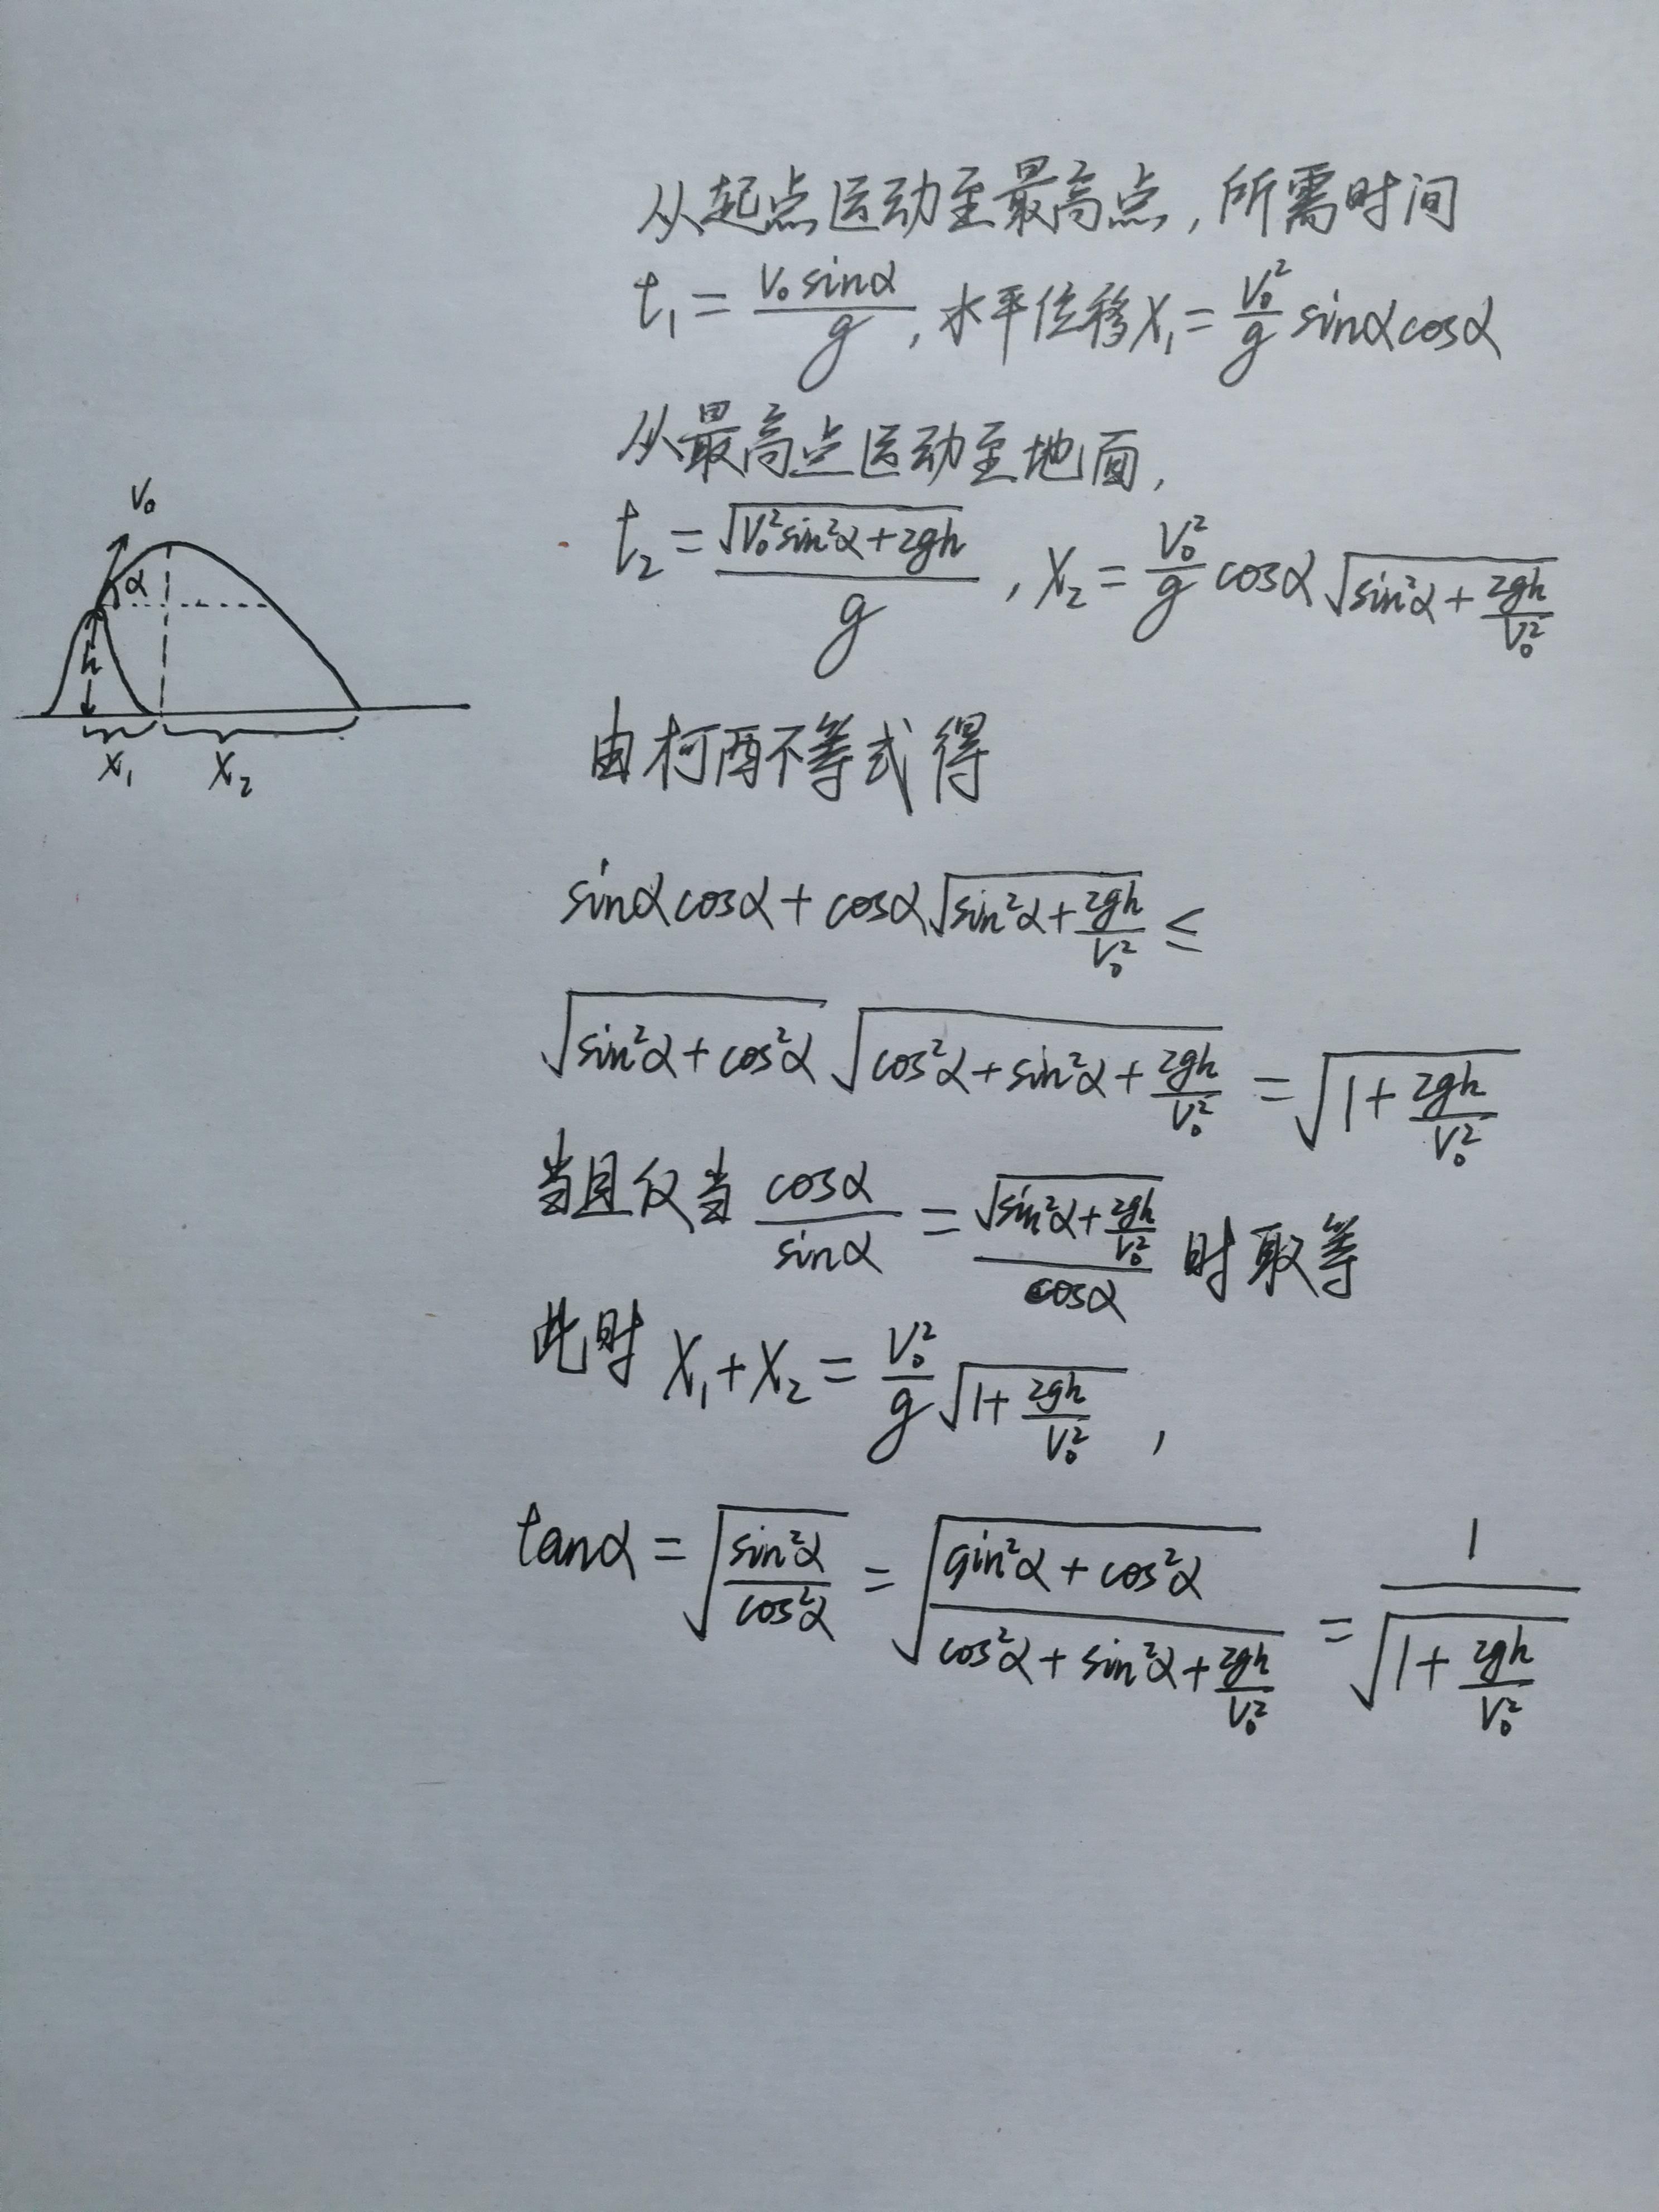 从起点运动至最高点,所需时间
t₁ = v₀sinα/g, 水平位移x₁ = v₀²/g sinαcosα
从最高点运动至地面,
t₂ = √(v₀²sin²α+2gh)/g, x₂ = v₀²/g cosα√(sin²α+2gh/v₀²)
v₀
α
h
x₁ x₂
由柯西不等式得
sinαcosα+cosα√(sin²α+2gh/v₀²) ≤
√(sin²α+cos²α) √(cos²α+sin²α+2gh/v₀²) = √(1+2gh/v₀²)
当且仅当 cosα/sinα = √(sin²α+2gh/v₀²)/cosα 时取等
此时 x₁+x₂ = v₀²/g √(1+2gh/v₀²),
tanα = √(sin²α/cos²α) = √((sin²α+cos²α)/(cos²α+sin²α+2gh/v₀²)) = 1/√(1+2gh/v₀²)